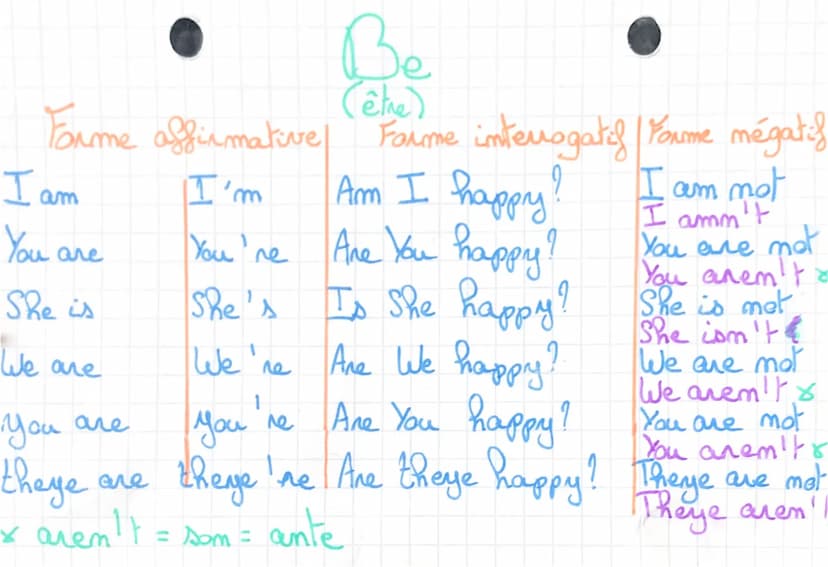 Be
(être)
Forme affirmative Forme interrogatif Forme négatif
I am I'm Am I happy? I am not
I amn't
You are You're Are You happy? You are not
You aren't x
She is She's Is She happy? She is not
She isn't
We are We're Are We happy? We are not
We aren't x
you are you're Are You happy? You are not
You aren't x
theye are theye're Are theye happy? Theye are not
Theye aren't
x aren't = son = ante